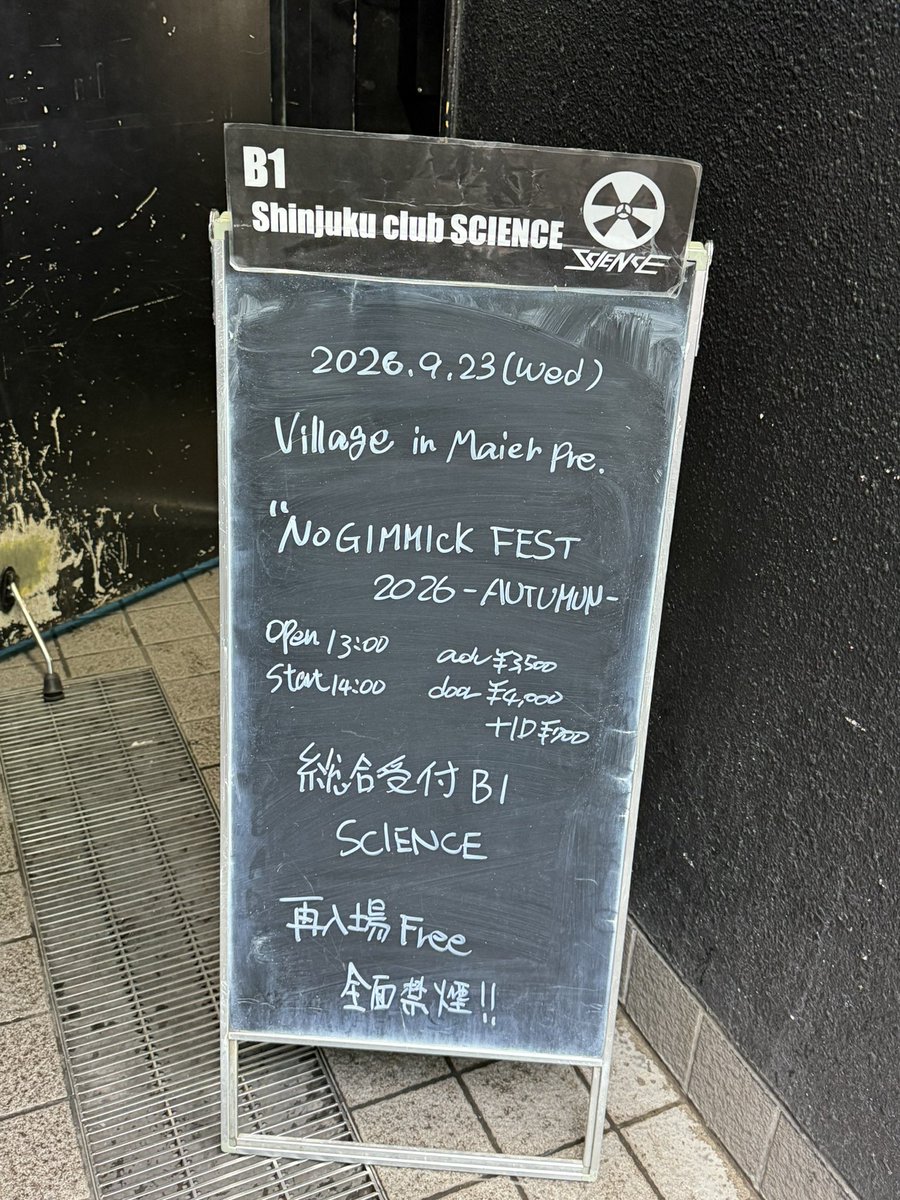 B1
Shinjuku club SCIENCE
SCIENCE
2026.9.23(Wed)
Village in Maier Pre.
"NO GIMMICK FEST
2026 -AUTUMUN-
Open 13:00
Start 14:00
adv ¥3,500
door ¥4,000
+1D ¥700
総合受付 B1
SCIENCE
再入場 Free
全面禁煙!!